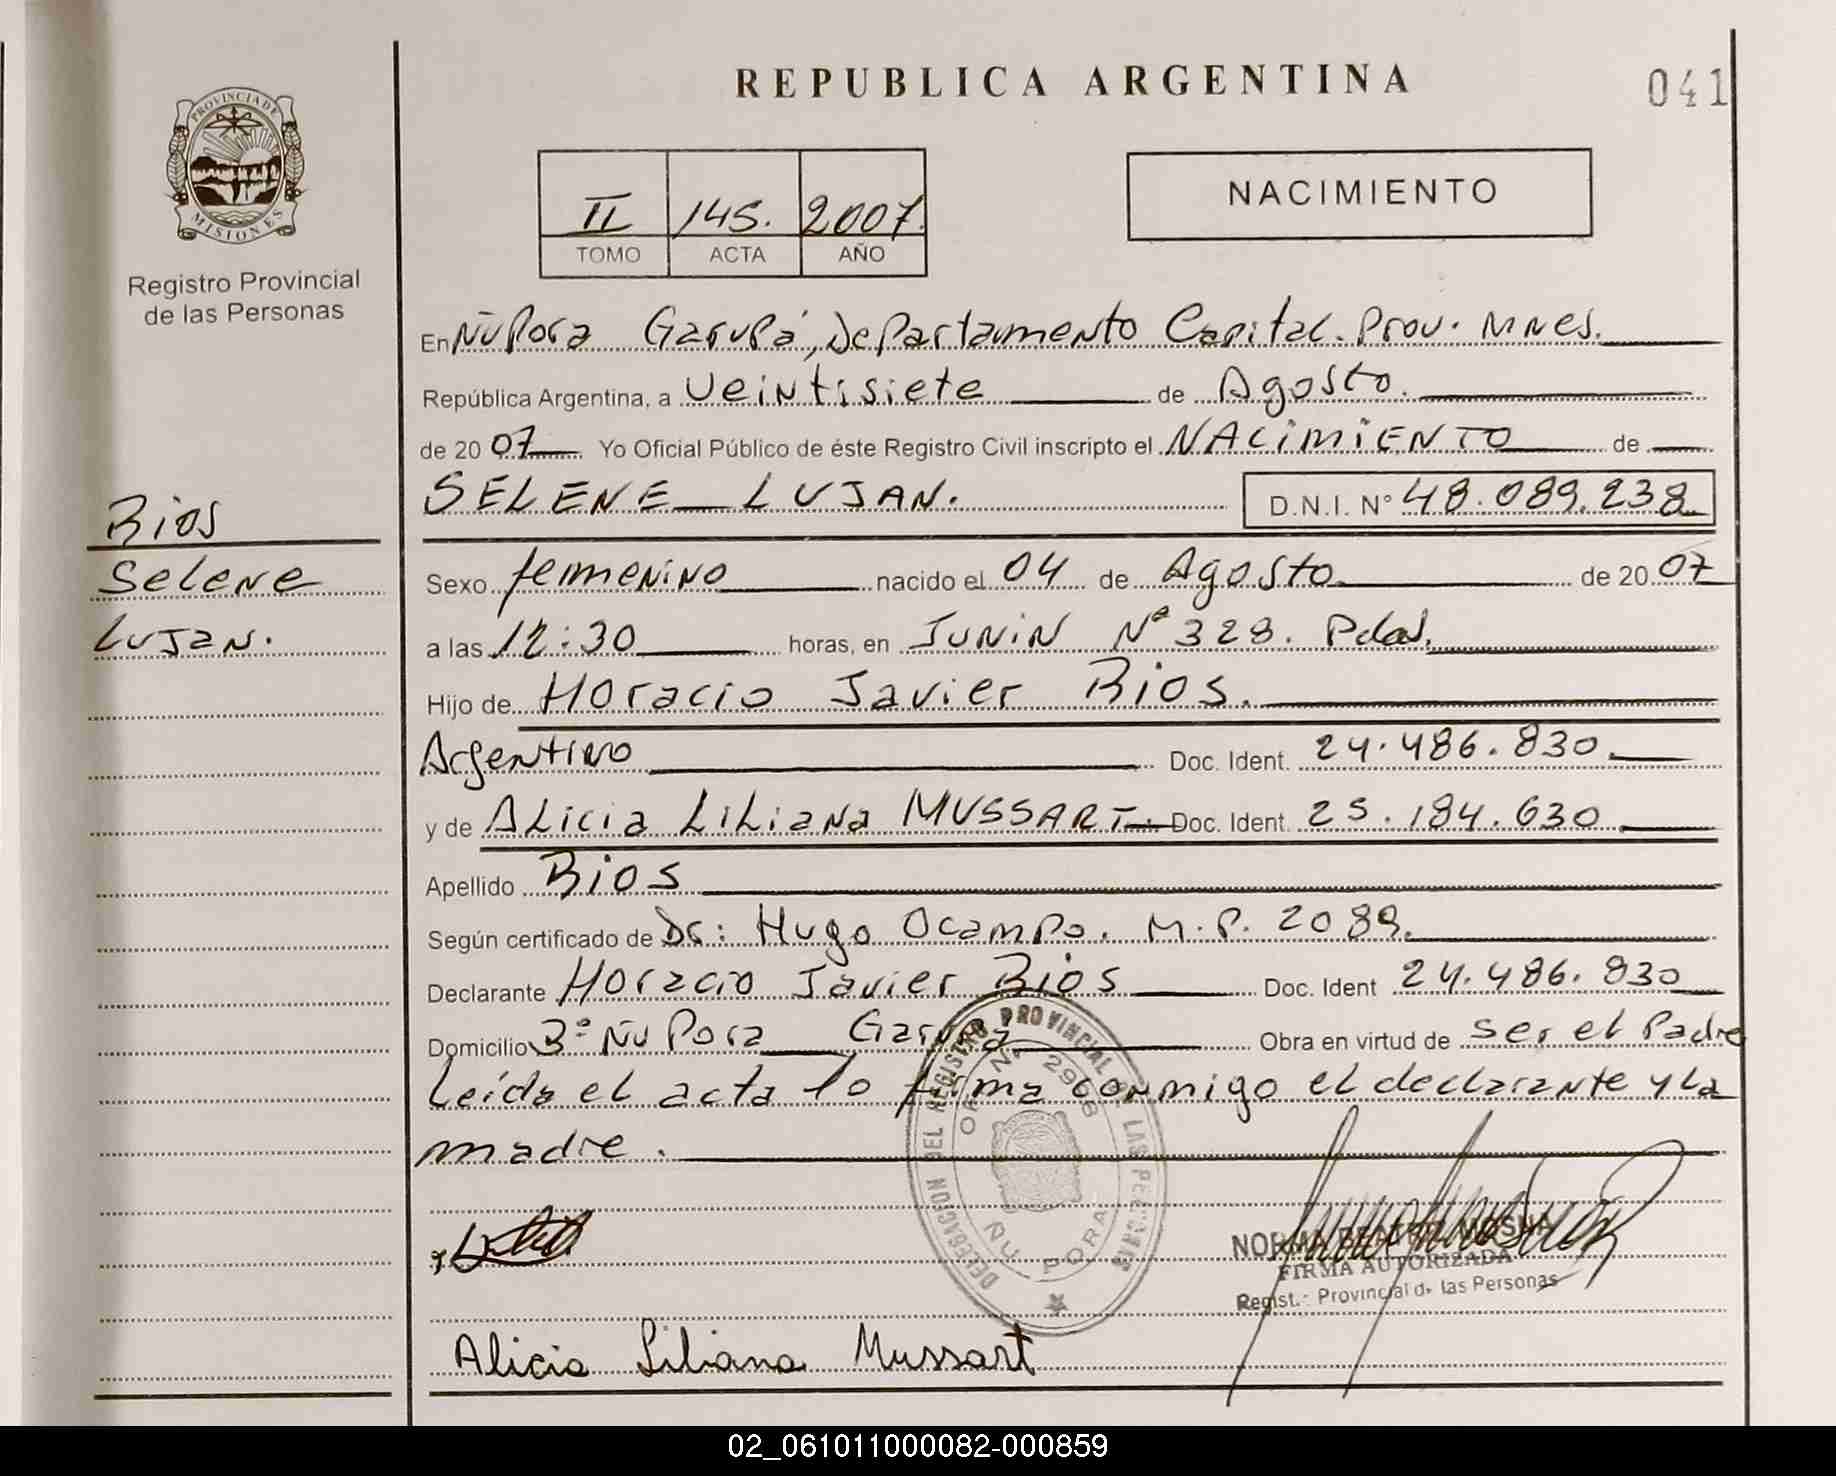 REPUBLICA ARGENTINA
041
PROVINCIA DE MISIONES
Registro Provincial
de las Personas
II 145. 2007.
TOMO ACTA AÑO
NACIMIENTO
En Ñu Pora Garupá, Departamento Capital. Prov. Mnes.
República Argentina, a Veintisiete de Agosto.
de 2007 Yo Oficial Público de éste Registro Civil inscripto el NACIMIENTO de
SELENE LUJAN. D.N.I. Nº 48.089.238
Rios
Selene
Lujan.
Sexo femenino nacido el 04 de Agosto de 2007
a las 12:30 horas, en JUNIN Nº 328. Pdas.
Hijo de Horacio Javier Rios.
Argentino Doc. Ident. 24.486.830.
y de Alicia Liliana MUSSART. Doc. Ident. 25.184.630
Apellido Rios
Según certificado de Dr: Hugo Ocampo. M.P. 2089.
Declarante Horacio Javier Rios Doc. Ident 24.486.830
Domicilio Bº Ñu Pora Garupa Obra en virtud de ser el Padre
Leída el acta lo firma conmigo el declarante y la
madre.
DELEGACION DEL REGISTRO PROVINCIAL DE LAS PERSONAS
OF. N. 2968
ÑU PORA
NORMA BEATRIZ
FIRMA AUTORIZADA
Regist.: Provincial de las Personas
Alicia Liliana Mussart
02_061011000082-000859